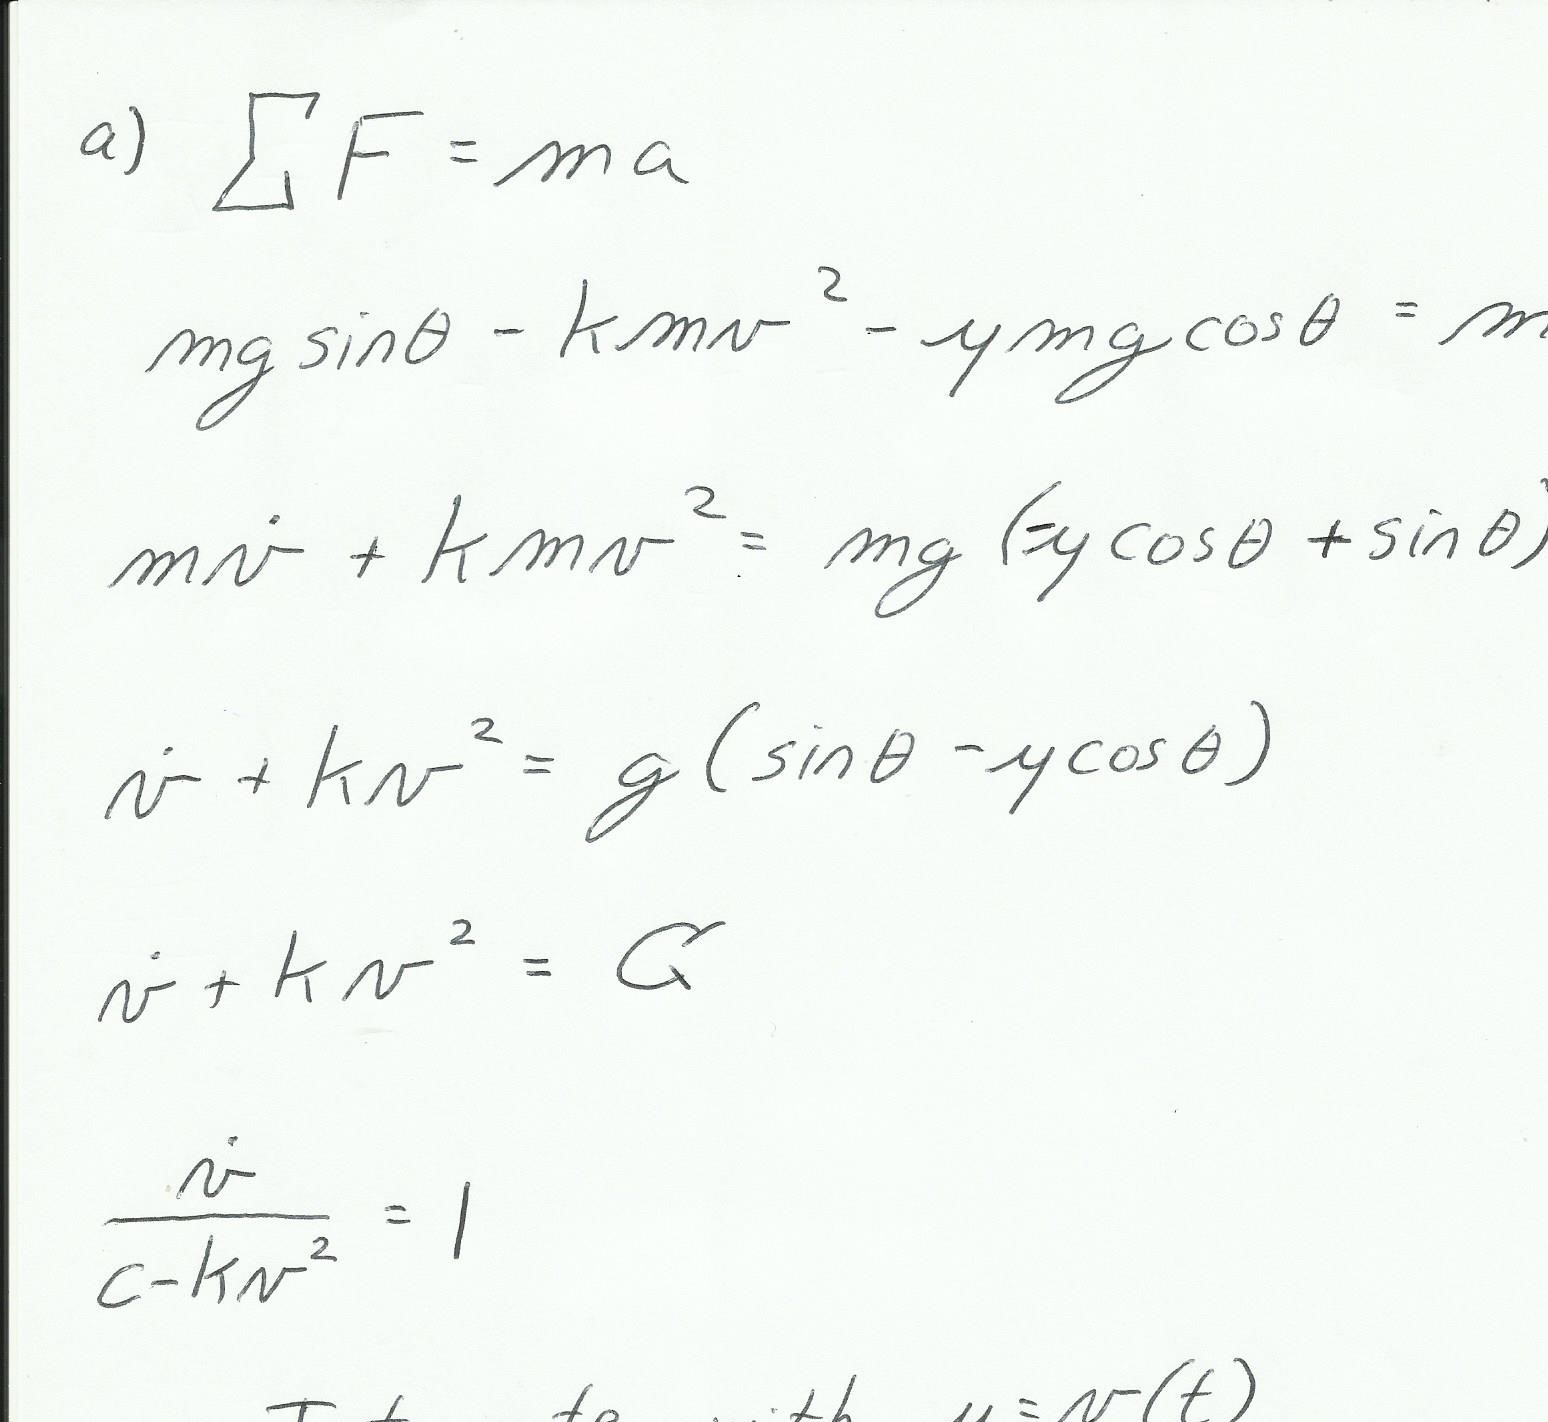 a) ∑ F = ma
mg sinθ - kmv² - ymg cosθ = m
mv̇ + kmv² = mg (-y cosθ + sinθ)
v̇ + kv² = g (sinθ - y cosθ)
v̇ + kv² = C
v̇ / (c - kv²) = 1
with u = v(t)